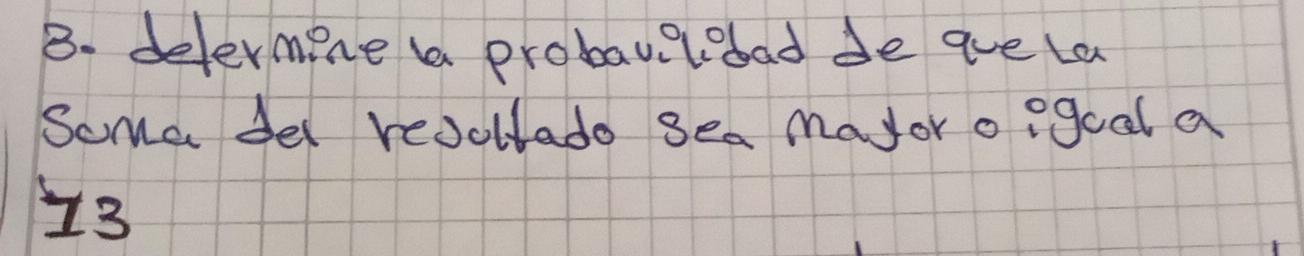 3. determine la probavilidad de que la
suma del resultado sea mayor o igual a
13